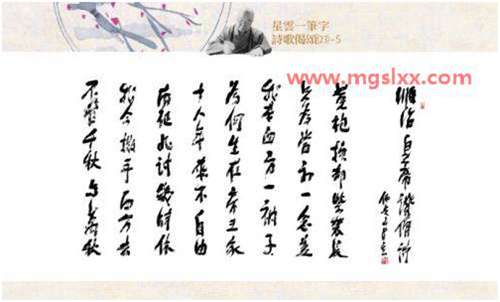 星雲一筆字
詩歌偈頌(23)-5
www.mgslxx.com
順治皇帝讚僧詩
黃袍換却紫袈裟
只為當初一念差
我本西方一衲子
為何生在帝王家
十八年來不自由
南征北討幾時休
我今撒手西方去
不管千秋與萬秋